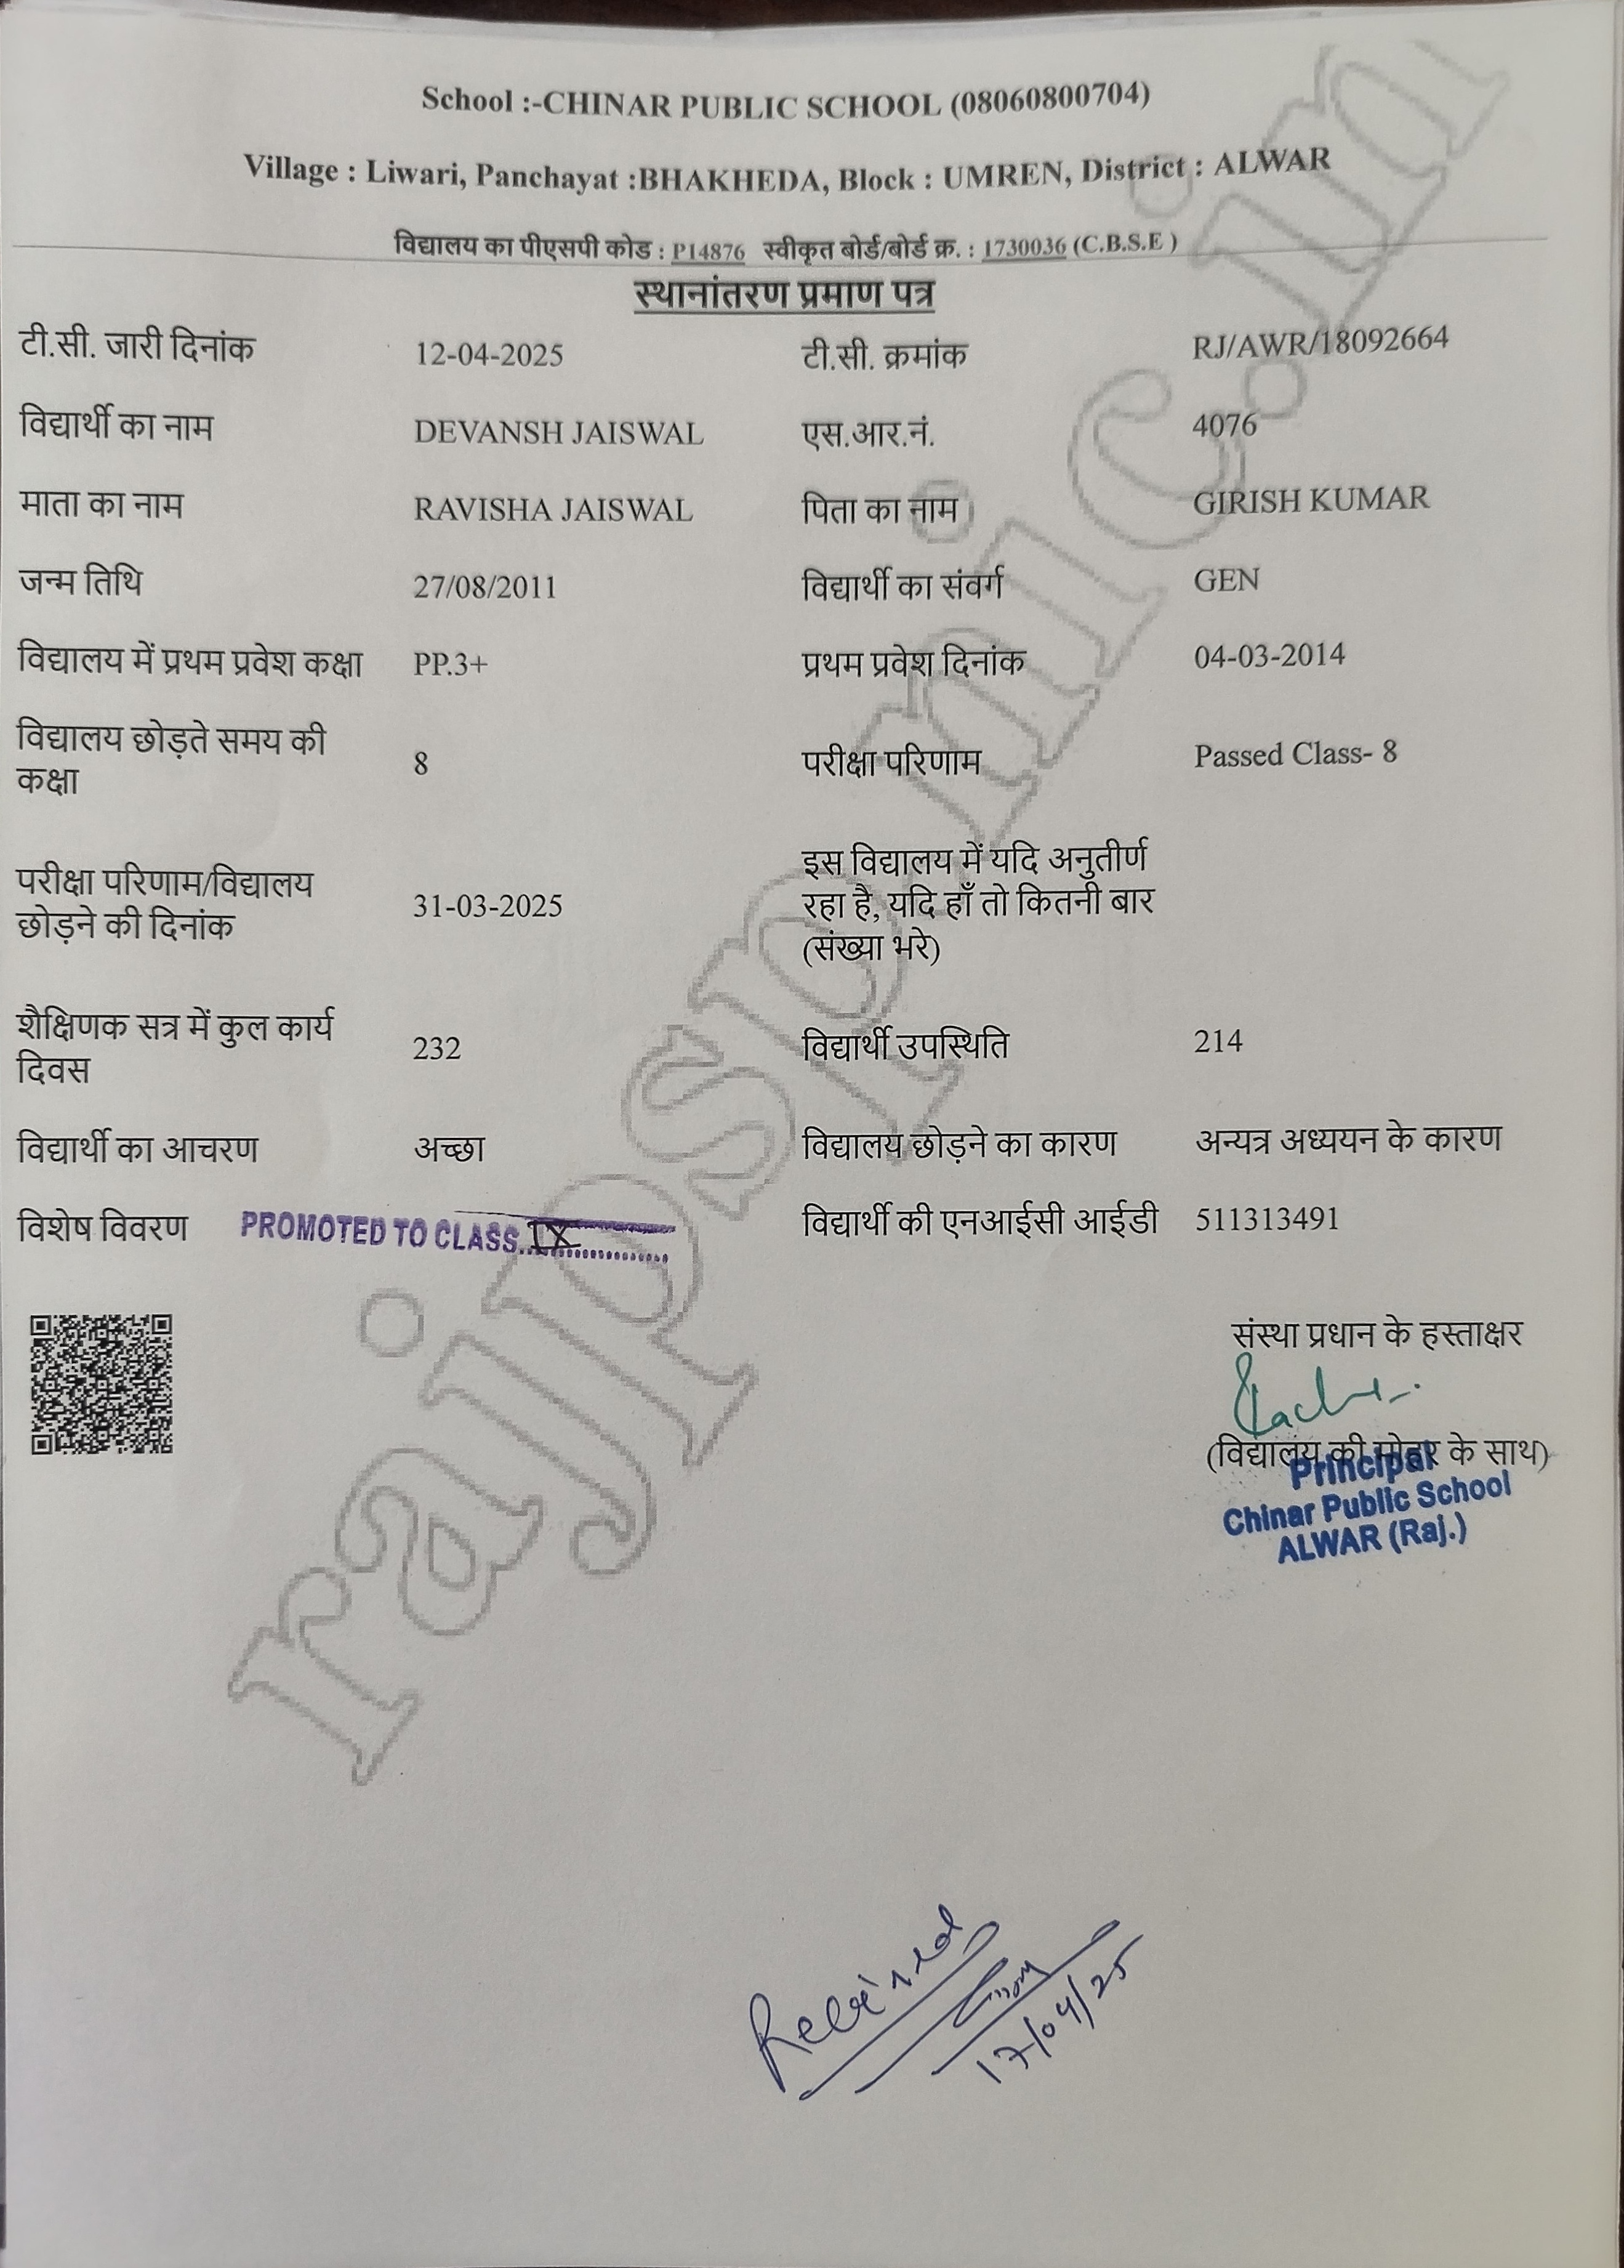 School :-CHINAR PUBLIC SCHOOL (08060800704)
Village : Liwari, Panchayat :BHAKHEDA, Block : UMREN, District : ALWAR
विद्यालय का पीएसपी कोड : P14876 स्वीकृत बोर्ड/बोर्ड क्र. : 1730036 (C.B.S.E )
स्थानांतरण प्रमाण पत्र
टी.सी. जारी दिनांक 12-04-2025 टी.सी. क्रमांक RJ/AWR/18092664
विद्यार्थी का नाम DEVANSH JAISWAL एस.आर.नं. 4076
माता का नाम RAVISHA JAISWAL पिता का नाम GIRISH KUMAR
जन्म तिथि 27/08/2011 विद्यार्थी का संवर्ग GEN
विद्यालय में प्रथम प्रवेश कक्षा PP.3+ प्रथम प्रवेश दिनांक 04-03-2014
विद्यालय छोड़ते समय की
कक्षा 8 परीक्षा परिणाम Passed Class- 8
परीक्षा परिणाम/विद्यालय
छोड़ने की दिनांक 31-03-2025
इस विद्यालय में यदि अनुतीर्ण
रहा है, यदि हाँ तो कितनी बार
(संख्या भरे)
शैक्षिणक सत्र में कुल कार्य
दिवस 232 विद्यार्थी उपस्थिति 214
विद्यार्थी का आचरण अच्छा विद्यालय छोड़ने का कारण अन्यत्र अध्ययन के कारण
विशेष विवरण PROMOTED TO CLASS IX विद्यार्थी की एनआईसी आईडी 511313491
संस्था प्रधान के हस्ताक्षर
(विद्यालय की मोहर के साथ)
Principal
Chinar Public School
ALWAR (Raj.)
rajpsp.nic.in
Received
17/04/25